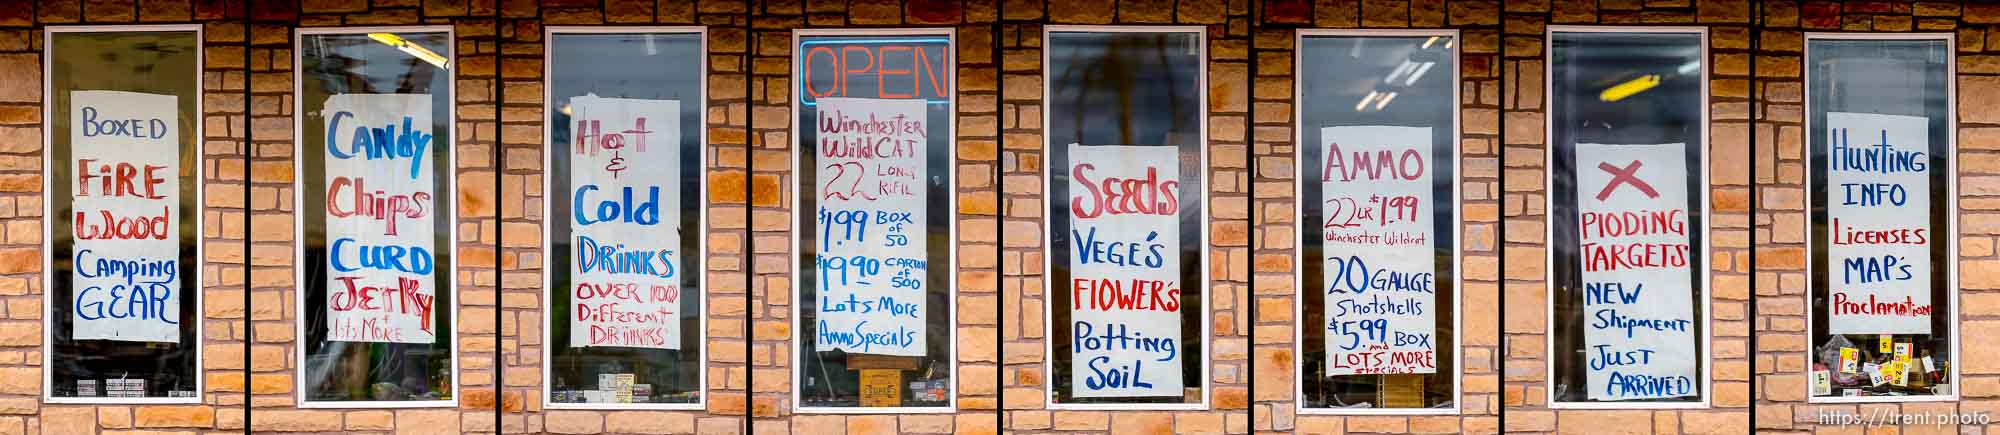 BOXED
FIRE
WOOD
CAMPING
GEAR
CANDY
CHIPS
CURD
JERKY
+
lots MORE
Hot
&
Cold
DRINKS
OVER 100
DIFFERENT
DRINKS
OPEN
WINCHESTER
WILDCAT
22 LONG
RIFIL
$1.99 BOX
OF
50
$19.90 CARTON
OF
500
LOTS MORE
AMMO SPECIALS
SEEDS
VEGE'S
FLOWER'S
POTTING
SOIL
AMMO
22LR $1.99
Winchester Wildcat
20 GAUGE
Shotshells
$5.99 BOX
AND
LOTS MORE
SPECIALS
X
PLODING
TARGETS
NEW
SHIPMENT
JUST
ARRIVED
HUNTING
INFO
LICENSES
MAP'S
PROCLAMATION
https://trent.photo